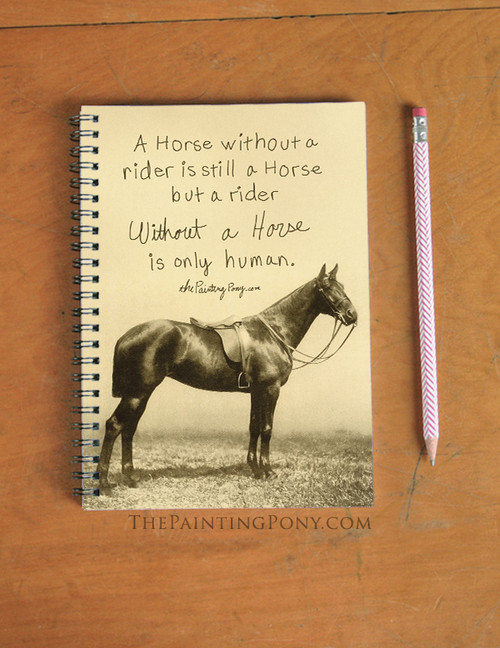 A Horse without a
rider is still a Horse
but a rider
Without a Horse
is only human.
thePaintingPony.com
ThePaintingPony.com